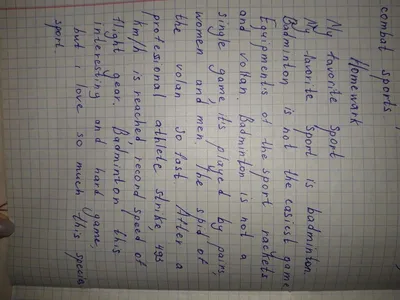 combat sports,
Homewark
My favorite sport
My favorite sport is badminton.
Badminton is not the easiest game
Equipments of the sport rackets
and vollan. Badminton is not a
single game, it's played by pairs,
women and men. The spid of
the volan so fast After a
professional athlete strike, 493
km/h is reached record speed of
flight gear. Badminton this
interesting and hard game,
but i love so much this special
sport.